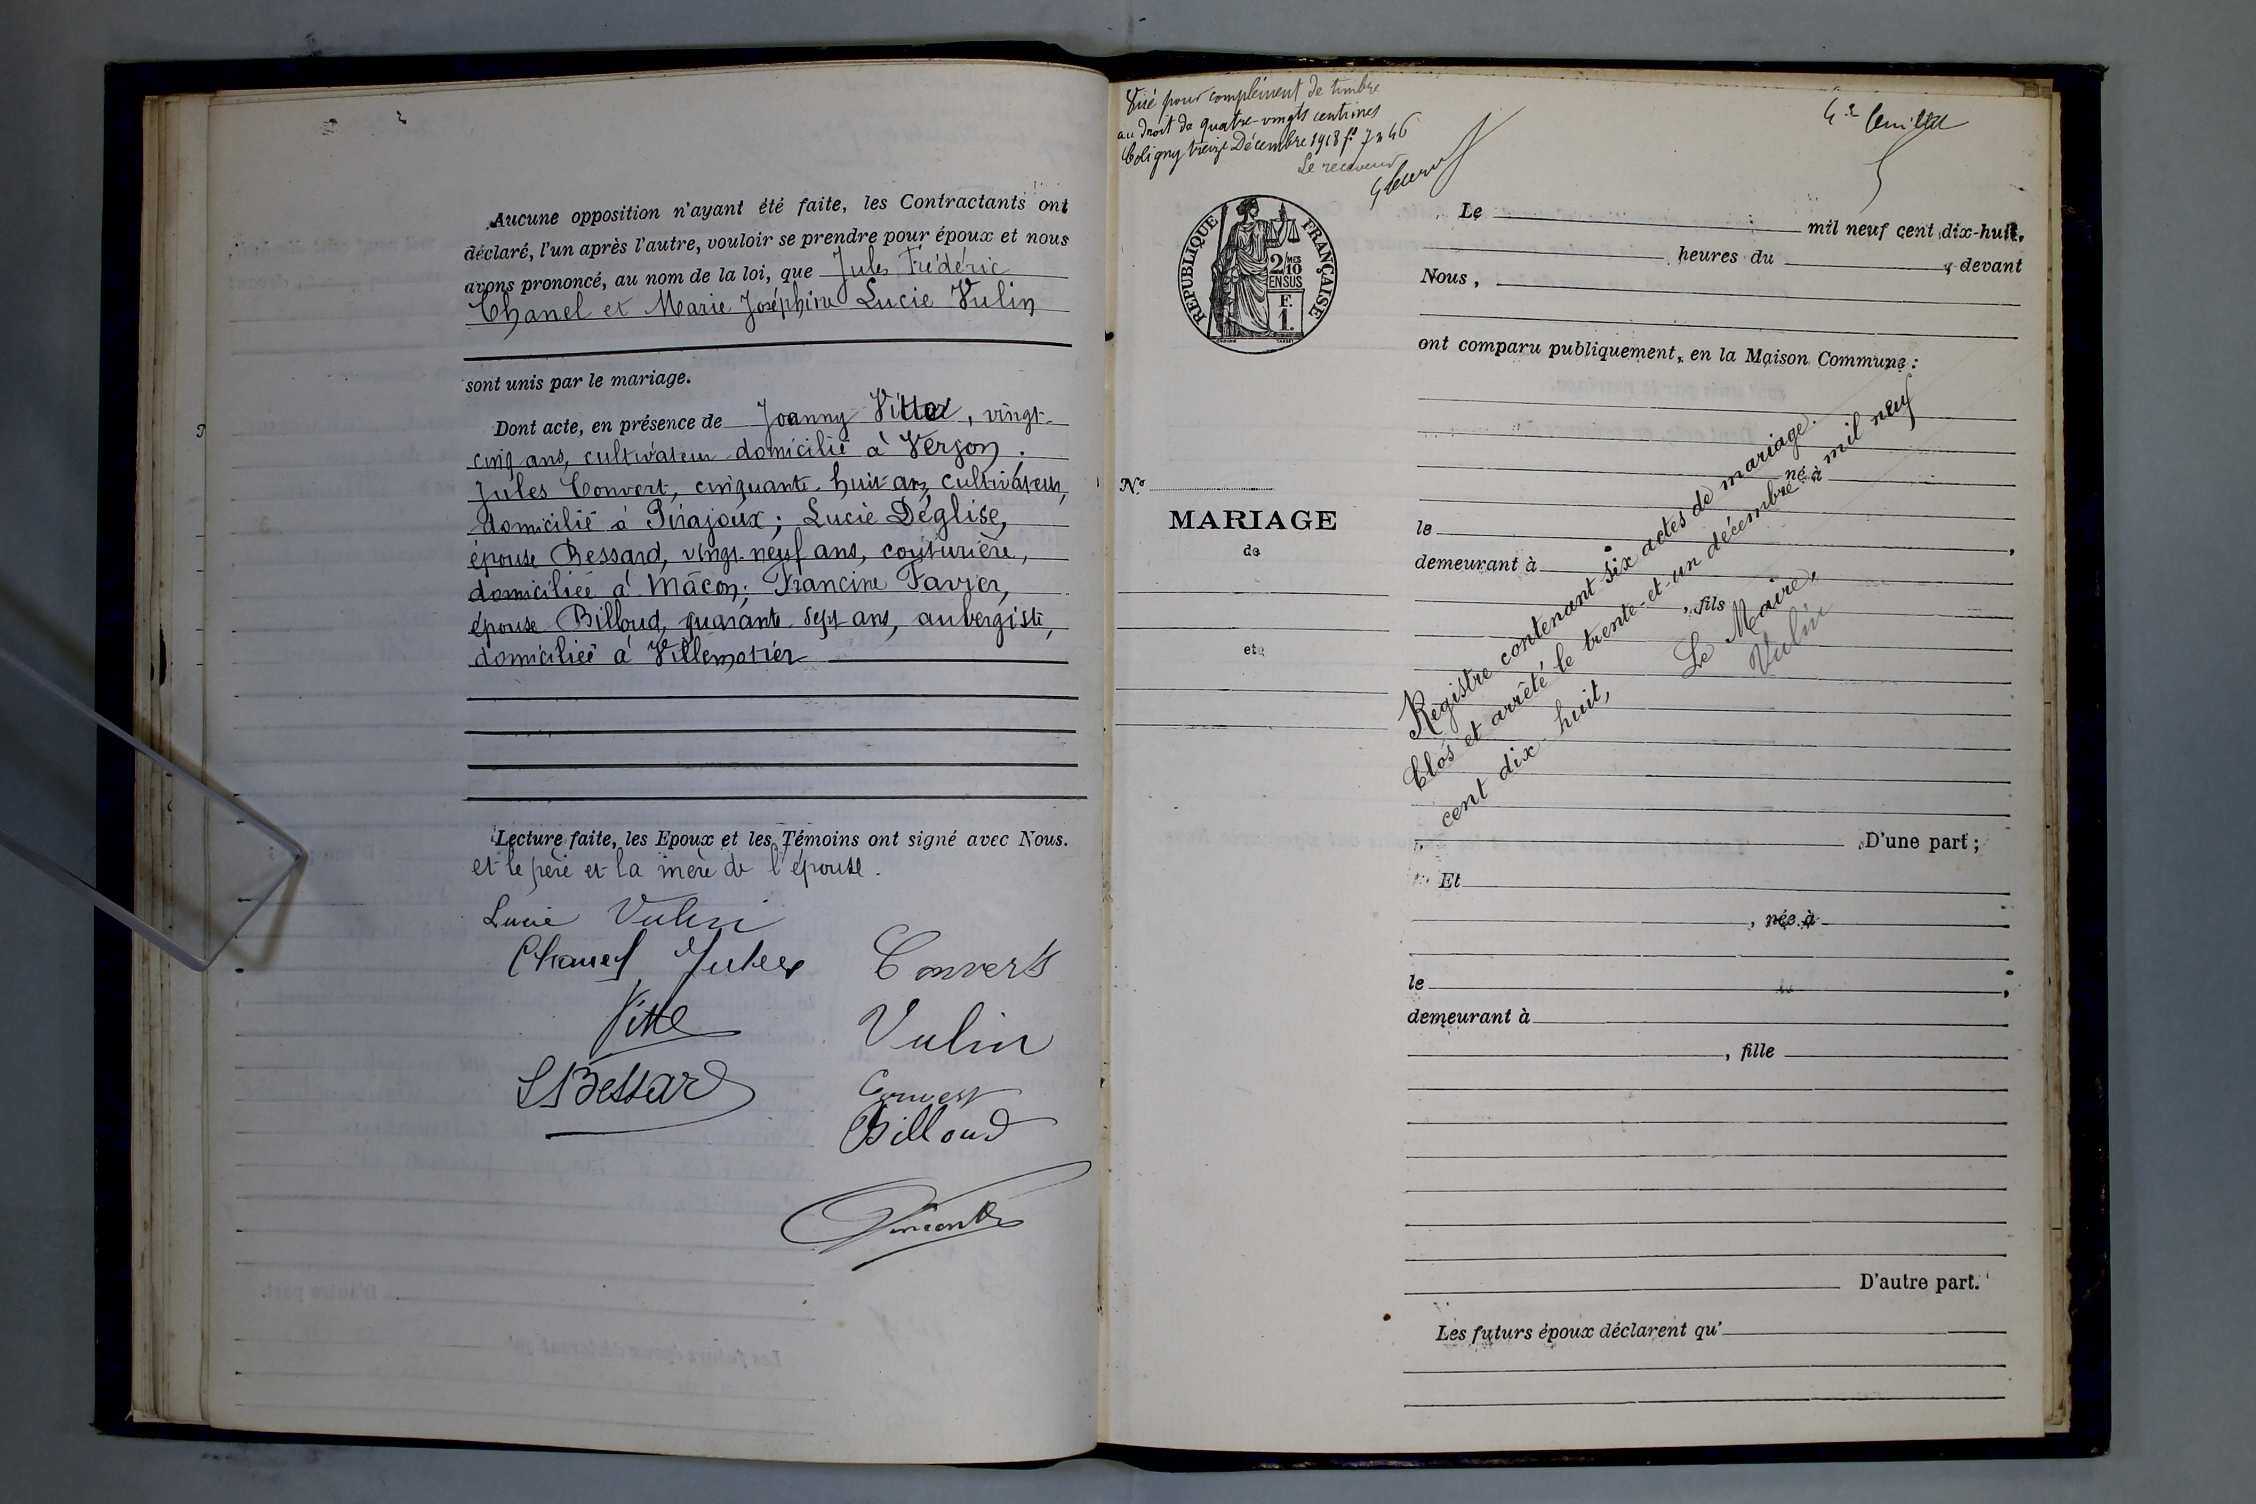 Aucune opposition n'ayant été faite, les Contractants ont
déclaré, l'un après l'autre, vouloir se prendre pour époux et nous
avons prononcé, au nom de la loi, que Jules Frédéric
Chanel et Marie Joséphine Lucie Vulin
sont unis par le mariage.
Dont acte, en présence de Joanny Vitte, vingt-
cinq ans, cultivateur domicilié à Verjon.
Jules Convert, cinquante-huit ans, cultivateur,
domicilié à Pirajoux; Lucie Déglise,
épouse Bessard, vingt-neuf ans, couturière,
domiciliée à Mâcon; Francine Favier,
épouse Billoud, quarante sept ans, aubergiste,
domiciliée à Villemotier
Lecture faite, les Epoux et les Témoins ont signé avec Nous.
et le père et la mère de l'épouse.
Lucie Vulin
Chanel Jules Convert
Vitte Vulin
LBessard Convert
Billoud
Visé pour complément de timbre
au droit de quatre-vingts centimes
Coligny treize Décembre 1918 f° 7 n 46
Le receveur
4e feuillet
REPUBLIQUE FRANÇAISE
2/10 MES
EN SUS
F.
1.
Le mil neuf cent dix-huit,
heures du , devant
Nous,
ont comparu publiquement, en la Maison Commune:
né à
N°
MARIAGE
de
et
le ,
demeurant à
, fils
Registre contenant six actes de mariage.
Clos et arrêté le trente-et-un décembre mil neuf
cent dix-huit,
Le Maire,
Vulin
D'une part;
Et
, née à
le ,
demeurant à
, fille
D'autre part.
Les futurs époux déclarent qu'